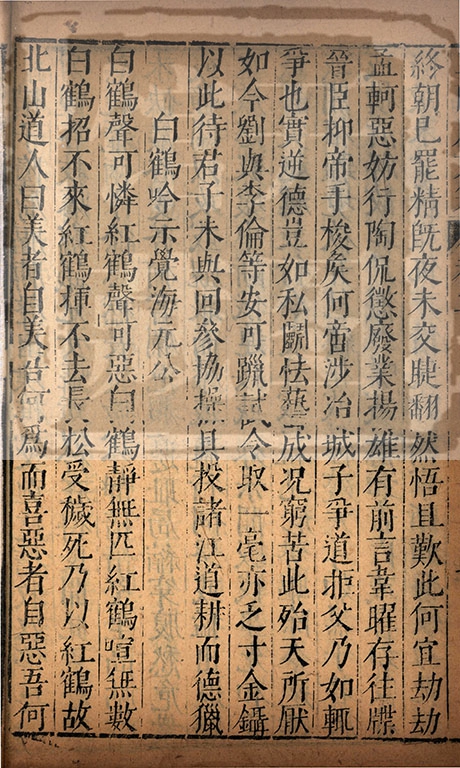 終朝已罷精既夜未交睫翻然悟且歎此何宜劫劫
孟軻惡妨行陶侃懲廢業揚雄有前言韋曜存往牒
晉臣抑帝手梭矦何啻涉冶城子爭道拒父乃如輒
爭也實逆德豈如私鬭怯藝成况窮苦此殆天所厭
如今劉與李倫等安可躐試令取一毫亦乏寸金鑷
以此待君子未與回參協操具投諸江道耕而德獵
白鶴吟示覺海元公
白鶴聲可憐紅鶴聲可惡白鶴靜無匹紅鶴喧無數
白鶴招不來紅鶴揮不去長松受穢死乃以紅鶴故
北山道人曰美者自美吾何爲而喜惡者自惡吾何